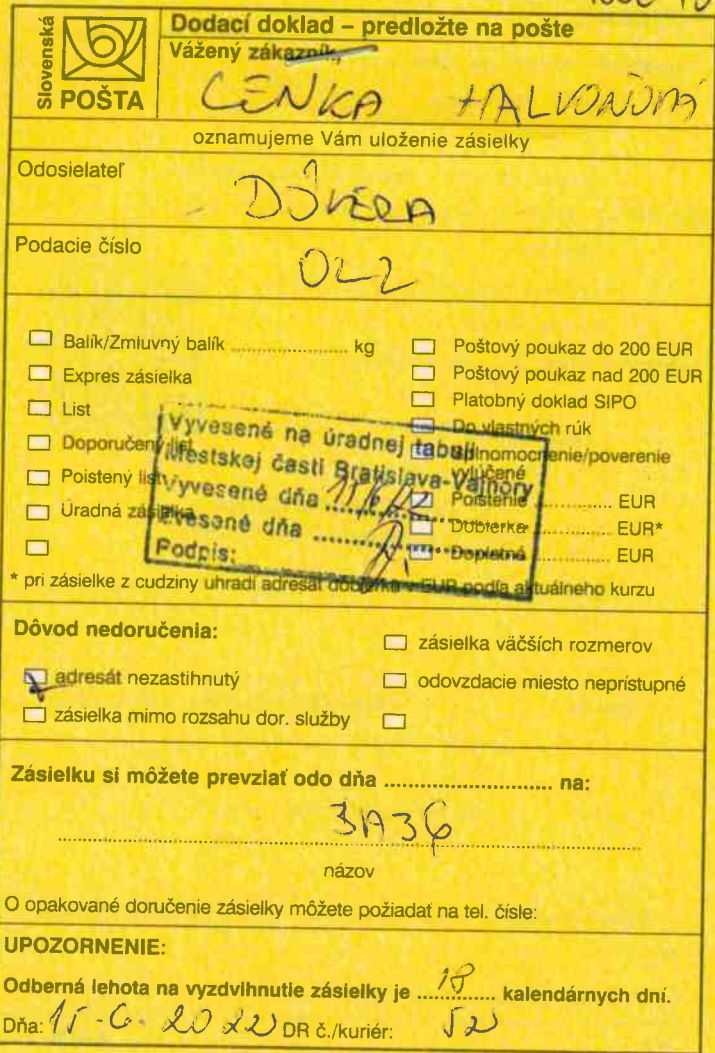 Slovenská
POŠTA
Dodací doklad – predložte na pošte
Vážený zákazník,
LENKA HALVOŇOVÁ
oznamujeme Vám uloženie zásielky
Odosielateľ
DÔVERA
Podacie číslo
022
Balík/Zmluvný balík ........................ kg
Expres zásielka
List
Doporučený list
Poistený list
Úradná zásielka
Poštový poukaz do 200 EUR
Poštový poukaz nad 200 EUR
Platobný doklad SIPO
Do vlastných rúk
splnomocnenie/poverenie
vylúčené
Poistenie ............... EUR
Dobierka ............... EUR*
Doplatné ............... EUR
Vyvesené na úradnej tabuli
Mestskej časti Bratislava-Vajnory
Vyvesené dňa
Zvesené dňa ....................
Podpis:
* pri zásielke z cudziny uhradí adresát dobierku v EUR podľa aktuálneho kurzu
Dôvod nedoručenia:
adresát nezastihnutý
zásielka mimo rozsahu dor. služby
zásielka väčších rozmerov
odovzdacie miesto neprístupné
Zásielku si môžete prevziať odo dňa ............................ na:
3A36
názov
O opakované doručenie zásielky môžete požiadať na tel. čísle:
UPOZORNENIE:
Odberná lehota na vyzdvihnutie zásielky je 18 kalendárnych dní.
Dňa: 15-6-2022 DR č./kuriér: 52